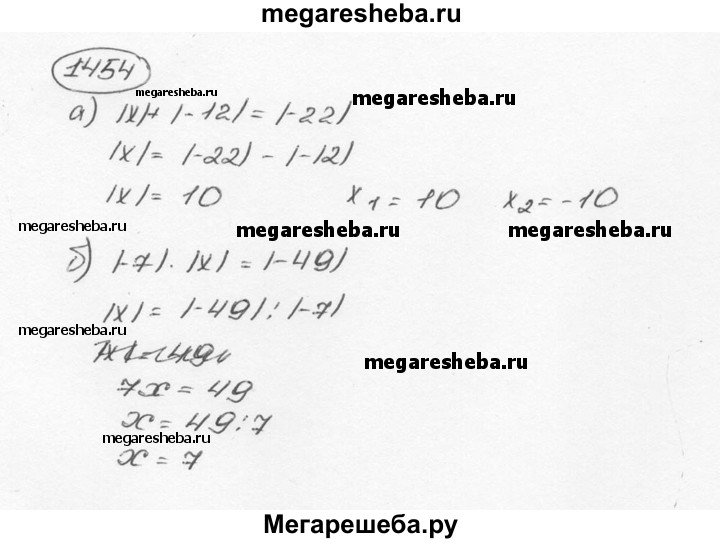 megaresheba.ru
1454
megaresheba.ru
а) |x|+ |-12| = |-22|
megaresheba.ru
|x| = |-22| - |-12|
|x| = 10 x1 = 10 x2 = -10
megaresheba.ru
megaresheba.ru
megaresheba.ru
б) |-7| · |x| = |-49|
|x| = |-49| : |-7|
megaresheba.ru
megaresheba.ru
7x = 49
x = 49:7
megaresheba.ru
x = 7
Мегарешеба.ру